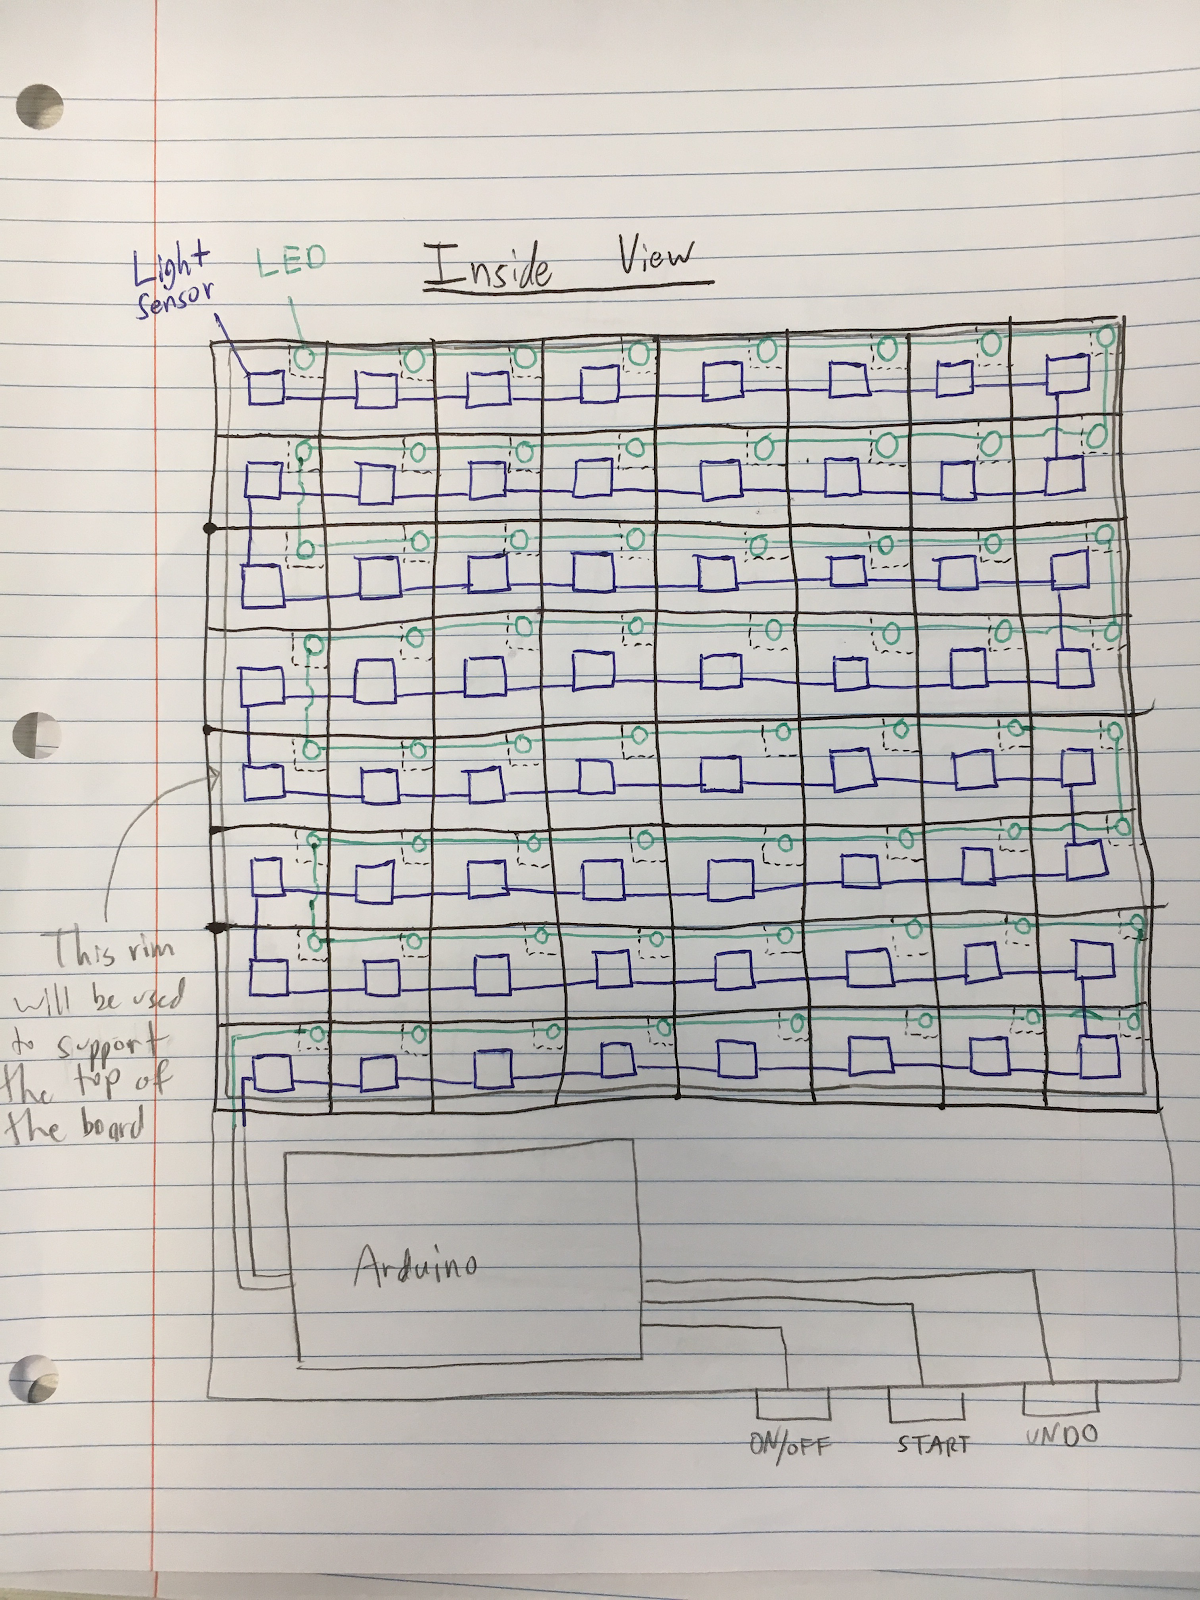 Inside View
Light
Sensor
LED
This rim
will be used
to support
the top of
the board
Arduino
ON/OFF
START
UNDO